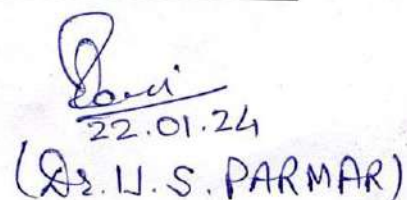 22.01.24
(Dr. U. S. PARMAR)